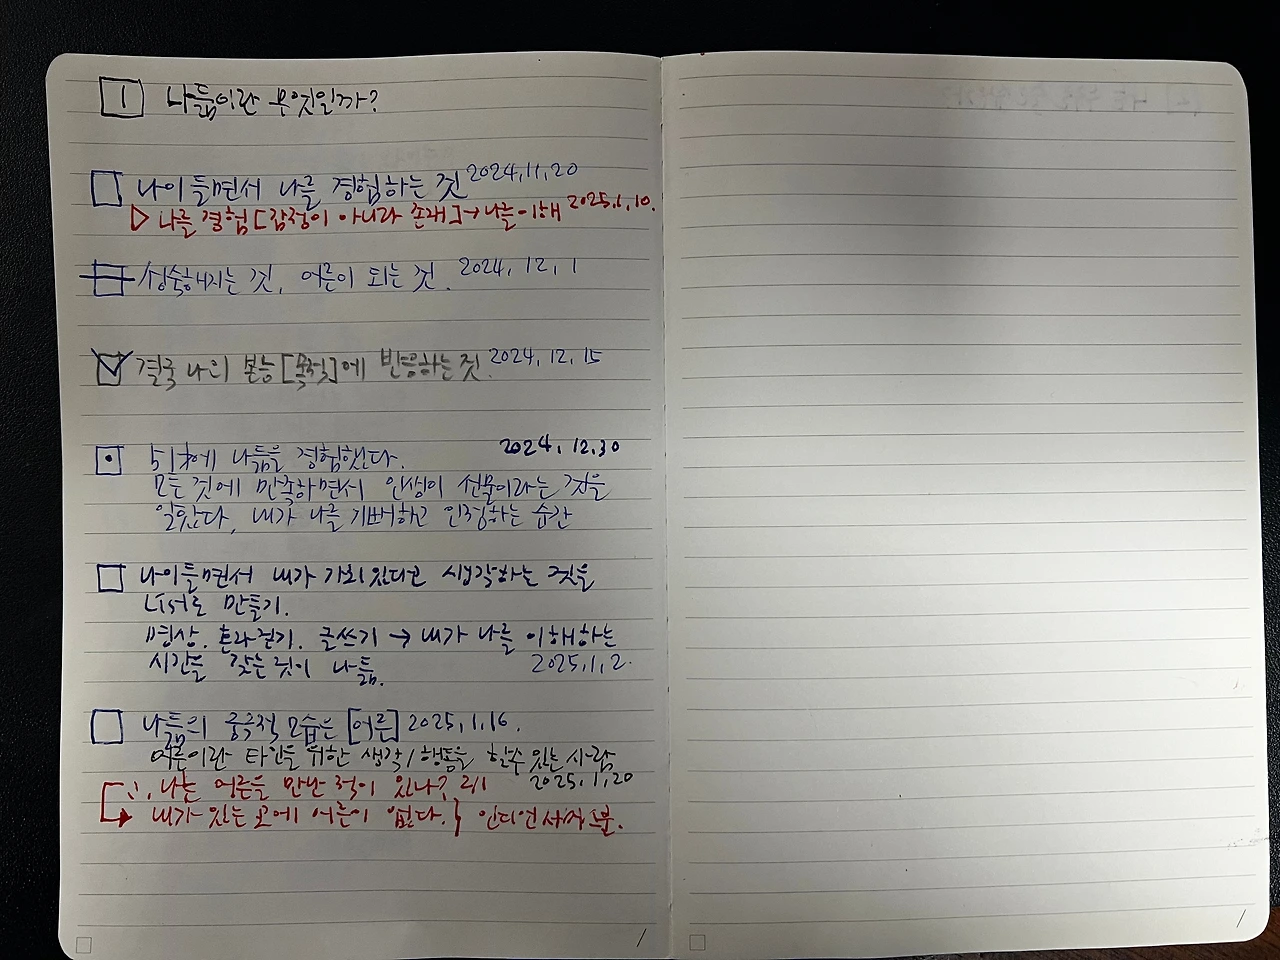 1 나듦이란 무엇일까?
나이 들면서 나를 경험하는 것 2024.11.20
▷ 나를 경험 [감정이 아니라 존재] → 나를 이해 2025.1.10.
성숙해지는 것, 어른이 되는 것. 2024. 12. 1
결국 나의 본능 [목적]에 반응하는 것. 2024. 12. 15
51才에 나듦을 경험했다. 2024. 12. 30
모든 것에 만족하면서 인생이 선물이라는 것을
알았다, 내가 나를 기뻐하고 인정하는 순간
나이들면서 내가 가치 있다고 생각하는 것을
List로 만들기.
명상. 혼라걷기. 글쓰기 → 내가 나를 이해하는
시간을 갖는 것이 나듦. 2025.1.2.
나듦의 궁극적 모습은 [어른] 2025.1.16.
어른이란 타인을 위한 생각/행동을 할수 있는 사람
∴ 나는 어른을 만난 적이 있나? 2/1 2025.1.20
내가 있는 곳에 어른이 없다. }